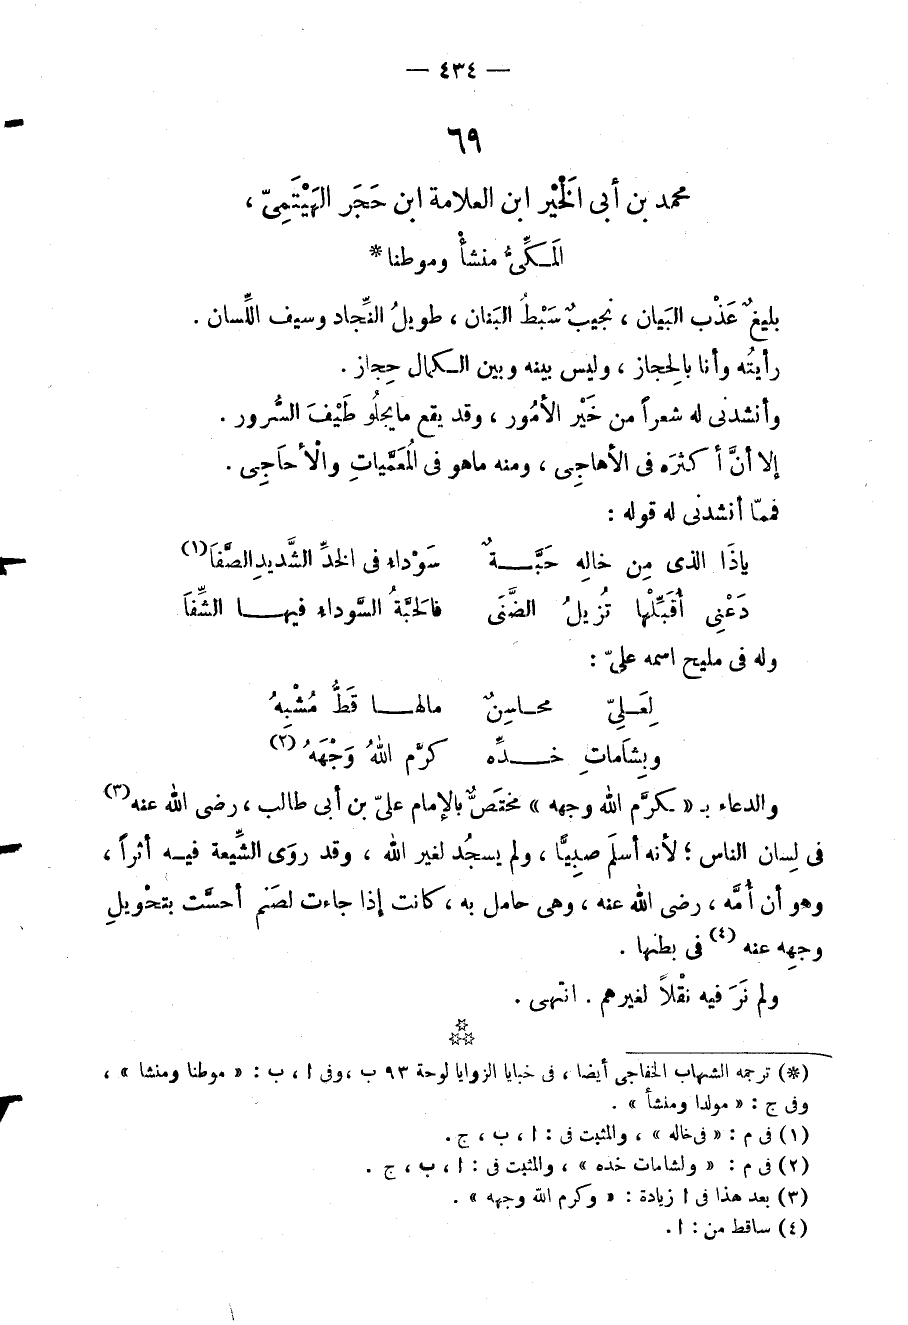 — ٤٣٤ —
٦٩
محمد بن أبى الخَيْر ابن العلامة ابن حَجَر الهَيْتَمِىّ ،
المَـكِّىُّ منشأً وموطنا*
بليغٌ عَذْب البَيان ، نجيبٌ سَبْطُ البَنان ، طويلُ النِّجاد وسيف اللِّسان .
رأيتُه وأنا بالحِجاز ، وليس بينه وبين الـكمال حِجاز .
وأنشدنى له شعراً من خَيْر الأمُور ، وقد يقع مايجلُو طَيْفَ السُّرور .
إلا أنَّ أكثرَه فى الأهاجِى ، ومنه ماهو فى المُعَمَّياتِ والْأحَاجِى .
فممّا أنشدنى له قوله :
ياذَا الذى مِن خالِه حَبَّـــةٌ سَوْداء فى الخدِّ الشَّديدِ الصَّفَا(١)
دَعْنِى أُقَبِّلْها تُزِيلُ الضَّنَى فالحَبَّةُ السَّوداء فيهـــا الشِّفَا
وله فى مليح اسمه علىّ :
لِعَــلِىّ محـاسِنٌ مالهــا قَطُّ مُشْبِهُ
وبِشَاماتِ خــدِّه كرَّم اللهُ وَجْهَهُ(٢)
والدعاء بـ « كرَّم الله وجهه » مختصٌّ بالإمام علىّ بن أبى طالب ، رضى الله عنه(٣)
فى لِسان الناس ؛ لأنه أسلَم صبِيًّا ، ولم يسجُد لغير الله ، وقد روَى الشِّيعة فيـه أثراً ،
وهو أن أُمَّه ، رضى الله عنه ، وهى حامل به ، كانت إذا جاءت لصَنم أحسَّت بتحْويلِ
وجهِه عنه(٤) فى بطنها .
ولم نَرَ فيه نقْلاً لغيرهم . انتهى .
(*) ترجمه الشهاب الخفاجى أيضا ، فى خبايا الزوايا لوحة ٩٣ ب ،وفى ا ، ب : « موطنا ومنشا » ،
وفى ج : « مولدا ومنشأ » .
(١) فى م : « فى خاله » ، والمثبت فى : ا ، ب ، ج .
(٢) فى م : « ولشامات خده » ، والمثبت فى : ا ، ب ، ج .
(٣) بعد هذا فى ا زيادة : « وكرم الله وجهه » .
(٤) ساقط من : ا .